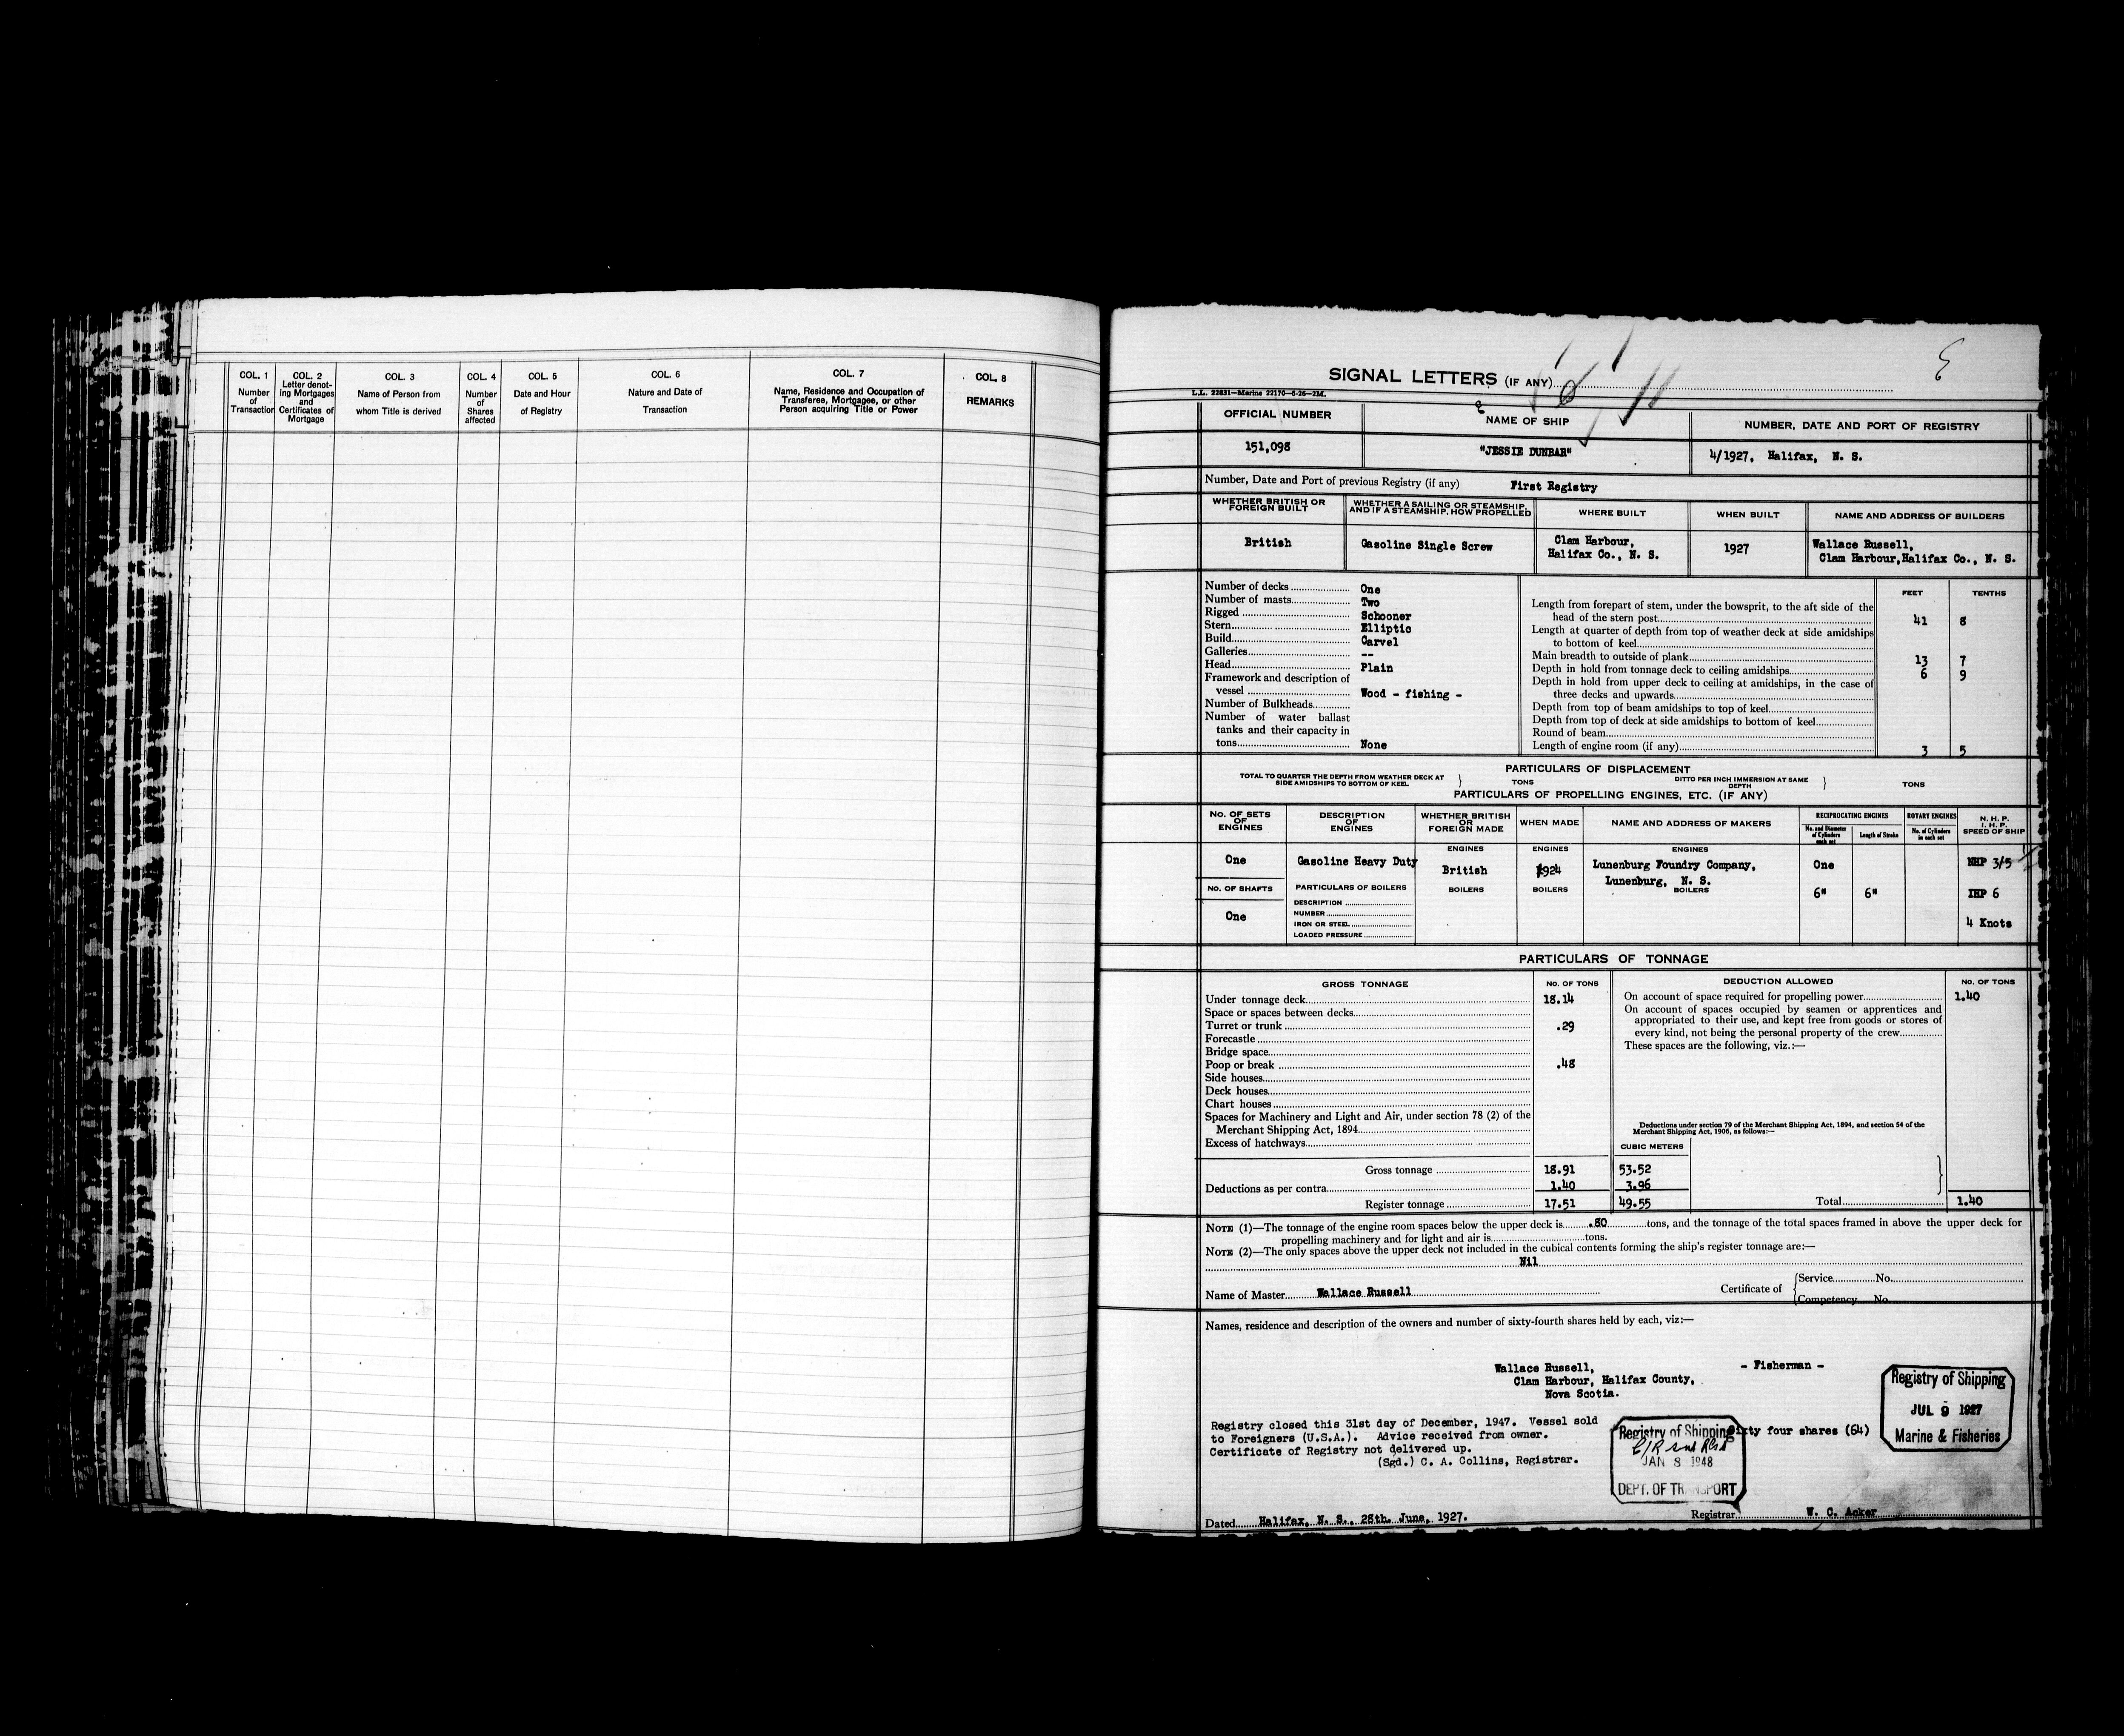 COL. 1
Number
of
Transaction
COL. 2
Letter denot-
ing Mortgages
and
Certificates of
Mortgage
COL. 3
Name of Person from
whom Title is derived
COL. 4
Number
of
Shares
affected
COL. 5
Date and Hour
of Registry
COL. 6
Nature and Date of
Transaction
COL. 7
Name, Residence and Occupation of
Transferee, Mortgagee, or other
Person acquiring Title or Power
COL. 8
REMARKS
SIGNAL LETTERS (IF ANY)
L.L. 22831—Marine 22170—6-26—2M.
OFFICIAL NUMBER
NAME OF SHIP
NUMBER, DATE AND PORT OF REGISTRY
151,098
"JESSIE DUNBAR"
4/1927, Halifax, N. S.
Number, Date and Port of previous Registry (if any) First Registry
WHETHER BRITISH OR
FOREIGN BUILT
WHETHER A SAILING OR STEAMSHIP,
AND IF A STEAMSHIP, HOW PROPELLED
WHERE BUILT
WHEN BUILT
NAME AND ADDRESS OF BUILDERS
British
Gasoline Single Screw
Clam Harbour,
Halifax Co., N. S.
1927
Wallace Russell,
Clam Harbour,Halifax Co., N. S.
Number of decks One
Number of masts Two
Rigged Schooner
Stern Elliptic
Build Carvel
Galleries --
Head Plain
Framework and description of
vessel Wood - fishing -
Number of Bulkheads
Number of water ballast
tanks and their capacity in
tons None
FEET TENTHS
Length from forepart of stem, under the bowsprit, to the aft side of the
head of the stern post 41 8
Length at quarter of depth from top of weather deck at side amidships
to bottom of keel
Main breadth to outside of plank 13 7
Depth in hold from tonnage deck to ceiling amidships 6 9
Depth in hold from upper deck to ceiling at amidships, in the case of
three decks and upwards
Depth from top of beam amidships to top of keel
Depth from top of deck at side amidships to bottom of keel
Round of beam
Length of engine room (if any) 3 5
PARTICULARS OF DISPLACEMENT
TOTAL TO QUARTER THE DEPTH FROM WEATHER DECK AT
SIDE AMIDSHIPS TO BOTTOM OF KEEL
TONS
DITTO PER INCH IMMERSION AT SAME
DEPTH
TONS
PARTICULARS OF PROPELLING ENGINES, ETC. (IF ANY)
No. OF SETS
OF
ENGINES
DESCRIPTION
OF
ENGINES
WHETHER BRITISH
OR
FOREIGN MADE
WHEN MADE
NAME AND ADDRESS OF MAKERS
RECIPROCATING ENGINES
No. and Diameter
of Cylinders
each set
Length of Stroke
ROTARY ENGINES
No. of Cylinders
in each set
N. H. P.
I. H. P.
SPEED OF SHIP
One
Gasoline Heavy Duty
ENGINES
British
ENGINES
1924
ENGINES
Lunenburg Foundry Company,
Lunenburg, N. S.
One
NHP 3/5
NO. OF SHAFTS
PARTICULARS OF BOILERS
BOILERS
BOILERS
BOILERS
6" 6"
IHP 6
One
DESCRIPTION
NUMBER
IRON OR STEEL
LOADED PRESSURE
4 Knots
PARTICULARS OF TONNAGE
GROSS TONNAGE
NO. OF TONS
DEDUCTION ALLOWED
NO. OF TONS
Under tonnage deck 18.14
Space or spaces between decks
Turret or trunk .29
Forecastle
Bridge space
Poop or break .48
Side houses
Deck houses
Chart houses
Spaces for Machinery and Light and Air, under section 78 (2) of the
Merchant Shipping Act, 1894
Excess of hatchways
On account of space required for propelling power 1.40
On account of spaces occupied by seamen or apprentices and
appropriated to their use, and kept free from goods or stores of
every kind, not being the personal property of the crew
These spaces are the following, viz.:—
Deductions under section 79 of the Merchant Shipping Act, 1894, and section 54 of the
Merchant Shipping Act, 1906, as follows:—
CUBIC METERS
Gross tonnage 18.91 53.52
Deductions as per contra 1.40 3.96
Register tonnage 17.51 49.55
Total 1.40
NOTE (1)—The tonnage of the engine room spaces below the upper deck is .80 tons, and the tonnage of the total spaces framed in above the upper deck for
propelling machinery and for light and air is tons.
NOTE (2)—The only spaces above the upper deck not included in the cubical contents forming the ship's register tonnage are:—
Nil
Name of Master Wallace Russell
Certificate of
Service No.
Competency No.
Names, residence and description of the owners and number of sixty-fourth shares held by each, viz:—
Wallace Russell, - Fisherman -
Clam Harbour, Halifax County,
Nova Scotia.
Registry of Shipping
JUL 9 1927
Marine & Fisheries
Registry closed this 31st day of December, 1947. Vessel sold
to Foreigners (U.S.A.). Advice received from owner.
Certificate of Registry not delivered up.
(Sgd.) C. A. Collins, Registrar.
Registry of Shipping
JAN 8 1948
DEPT. OF TRANSPORT
Sixty four shares (64)
Dated Halifax, N. S., 28th. June, 1927.
Registrar W. C. Acker